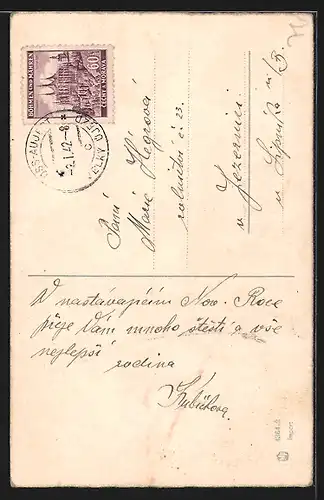 BÖHMEN UND MÄHREN
60
ČECHY A MORAVA
-2.I.42-8
Paní
Marie Hégrová
rolnitři č. 23.
v Jezernici
u Lipníka n/B.
V nastávajícím Nov. Roce
přeje Vám mnoho štěstí a vše
nejlepší rodina
Kubíčkova
Import